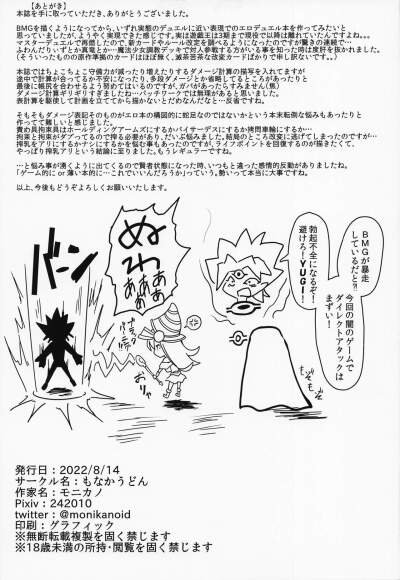 【あとがき】
本誌を手に取っていただき、ありがとうございました。
BMGを描くようになってから、いずれ実態のデュエルに近い表現でのエロデュエル本を作ってみたいと
思っていましたが、ようやく実現できた感じです。実は遊戯王は3期まで現役で以降は離れていたんですよねぇ。
マスターデュエルで再燃したので、新カードやルール改定を調べるようになったのですが驚きの連続で…
ふわんだりぃずとか真竜とか…魔法少女調教デッキで対人参戦する方がいる事を知った時は度肝を抜かれました。
(そういったものの原作準拠のカードはほぼ無く、滅茶苦茶な改変カードばかりで申し訳ない訳です。)
本誌ではちょこちょこ守備力が減ったり増えたりするダメージ計算の描写を入れてますが
途中で計算が合ってるか不安になったり、多段ダメージとか省略してるところがあったりと
最後に帳尻を合わせるよう努めてはいるのですが、ガバがあったらすみません(焦)
ダメージ計算ギリギリすぎましたね…パッチワークでは無理があると思いました。
表計算を駆使して計画を立ててから描かないとだめなんだなと…反省ですね。
そもそもダメージ表記そのものがエロ本の構図的に蛇足なのではないかという本末転倒な悩みもあったりと
作ってて難しいと感じました。
責め具拘束具はホールディングアームズにするかバイサーデスにするか拷問車輪にするか…
拘束と拘束がダブってるので搾る必要があり、だいぶ悩みました。結局のところ改変に逃げてしまったのですが…
搾乳をアリにするかナシにするかを悩む事もあったのですが、ライフポイントを回復するのが描きたくて、
やっぱり搾乳アリという結論に至りました。もうレギュラーですね。
…と悩み事が湧くように出てくるので賢者状態になった時、いつもと違った感情的反動がありましたね。
「ゲーム的に or 薄い本的に…これでいいんだろうか」っていう。勢いって本当に大事ですね。
以上、今後もどうぞよろしくお願いいたします。
BMGが暴走
しているだと?!
今回の闇のゲームで
ダイレクトアタックは
まずい!
勃起不全になるぞ!
避けろ!YUGI!
もぞもぞ
ぬわ
ああ
ああ
ああ
ブラックバーニング
おりゃ
バーン
発行日:2022/8/14
サークル名:もなかうどん
作家名:モニカノ
Pixiv:242010
twitter:@monikanoid
印刷:グラフィック
※無断転載複製を固く禁じます
※18歳未満の所持・閲覧を固く禁じます